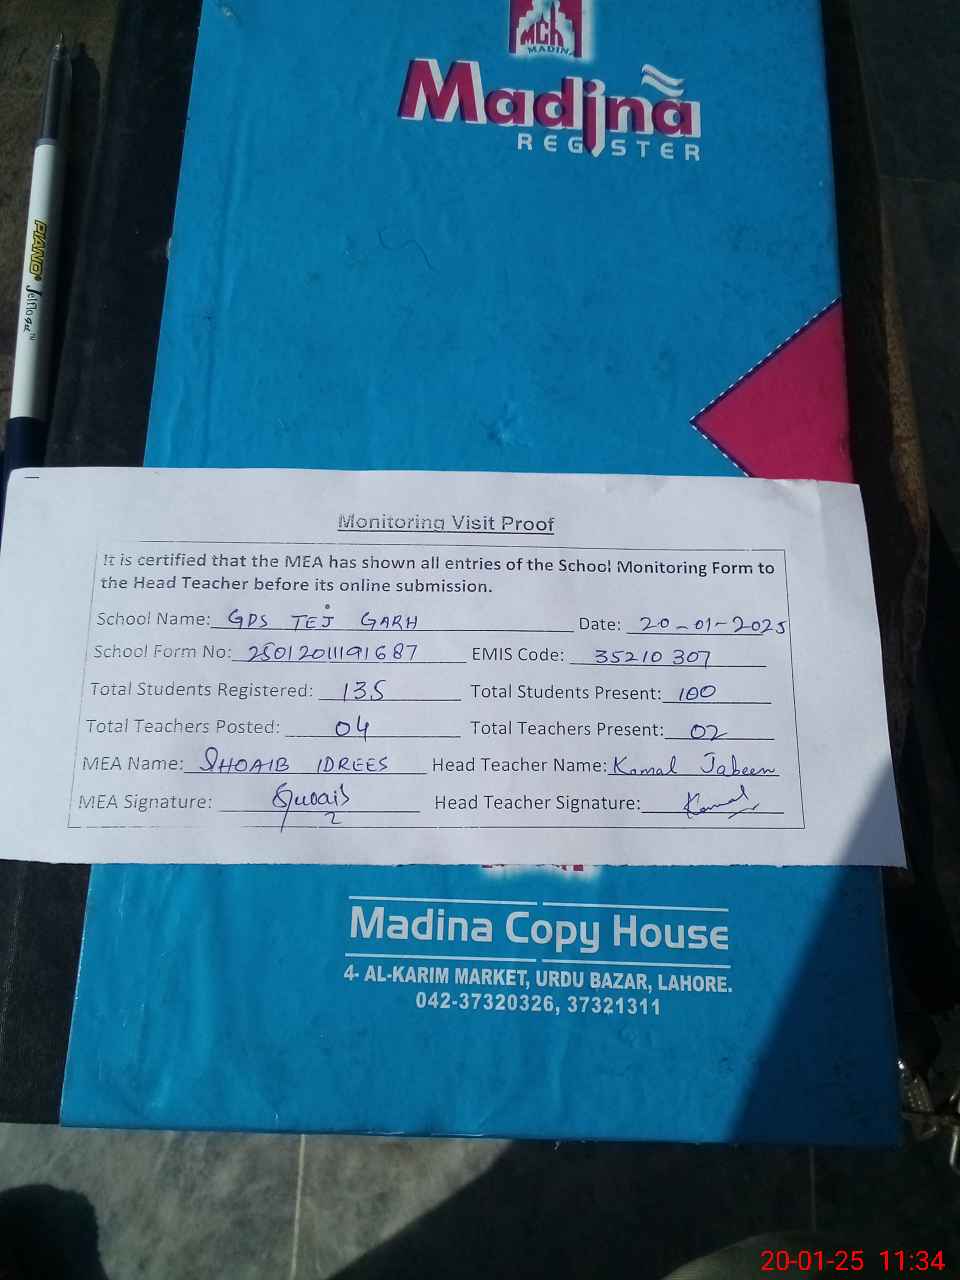 MCH
MADINA
Madina
REGISTER
PIANO
Monitoring Visit Proof
It is certified that the MEA has shown all entries of the School Monitoring Form to
the Head Teacher before its online submission.
School Name: GPS TEJ GARH Date: 20-01-2025
School Form No: 2501201119 1687 EMIS Code: 35210307
Total Students Registered: 135 Total Students Present: 100
Total Teachers Posted: 04 Total Teachers Present: 02
MEA Name: SHOAIB IDREES Head Teacher Name: Komal Jabeen
MEA Signature: Head Teacher Signature: Komal
Madina Copy House
4- AL-KARIM MARKET, URDU BAZAR, LAHORE.
042-37320326, 37321311
20-01-25 11:34